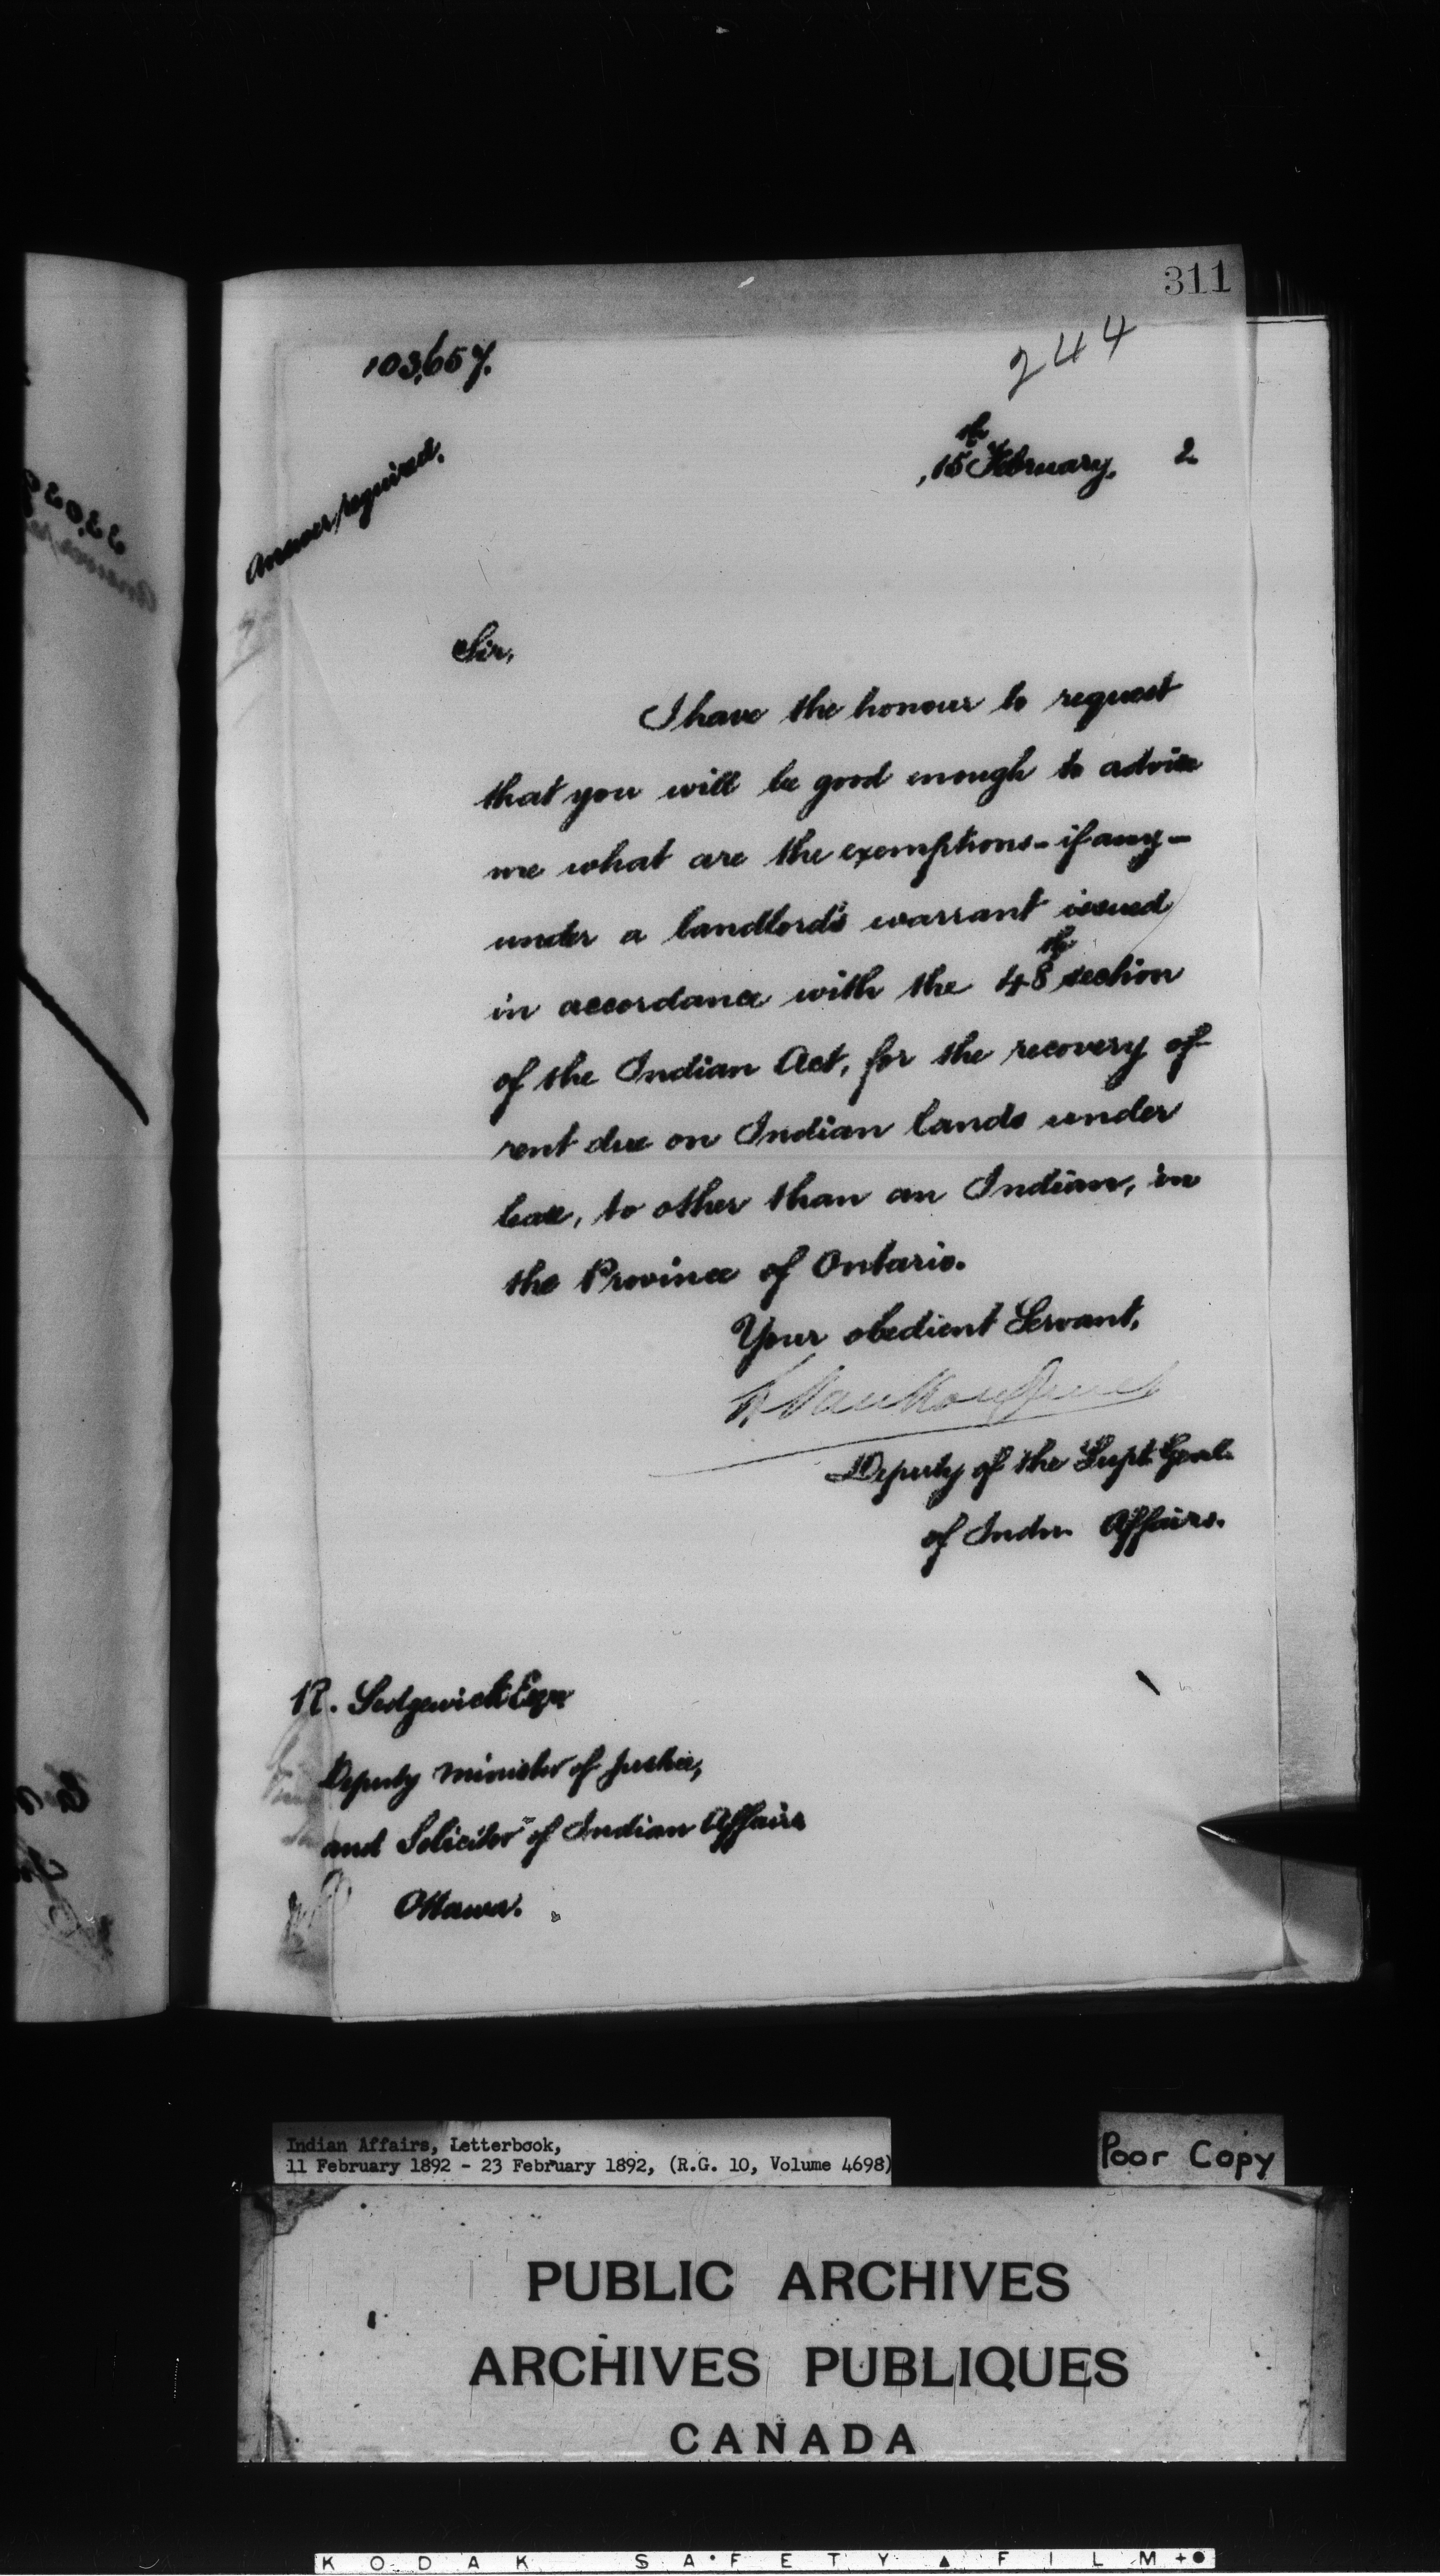 311
244
103,657.
Answer required.
15th February, 2
Sir,
I have the honour to request
that you will be good enough to advise
me what are the exemptions - if any -
under a landlord's warrant issued
in accordance with the 48th section
of the Indian Act, for the recovery of
rent due on Indian lands under
lease, to other than an Indian, in
the Province of Ontario.
Your obedient Servant,
L. VanKoughnet
Deputy of the Supt. Genl.
of Indn. Affairs.
R. Sedgewick Esqr
Deputy Minister of Justice,
and Solicitor of Indian Affairs
Ottawa.
Indian Affairs, Letterbook,
11 February 1892 - 23 February 1892, (R.G. 10, Volume 4698)
Poor Copy
PUBLIC ARCHIVES
ARCHIVES PUBLIQUES
CANADA
KODAK SAFETY FILM